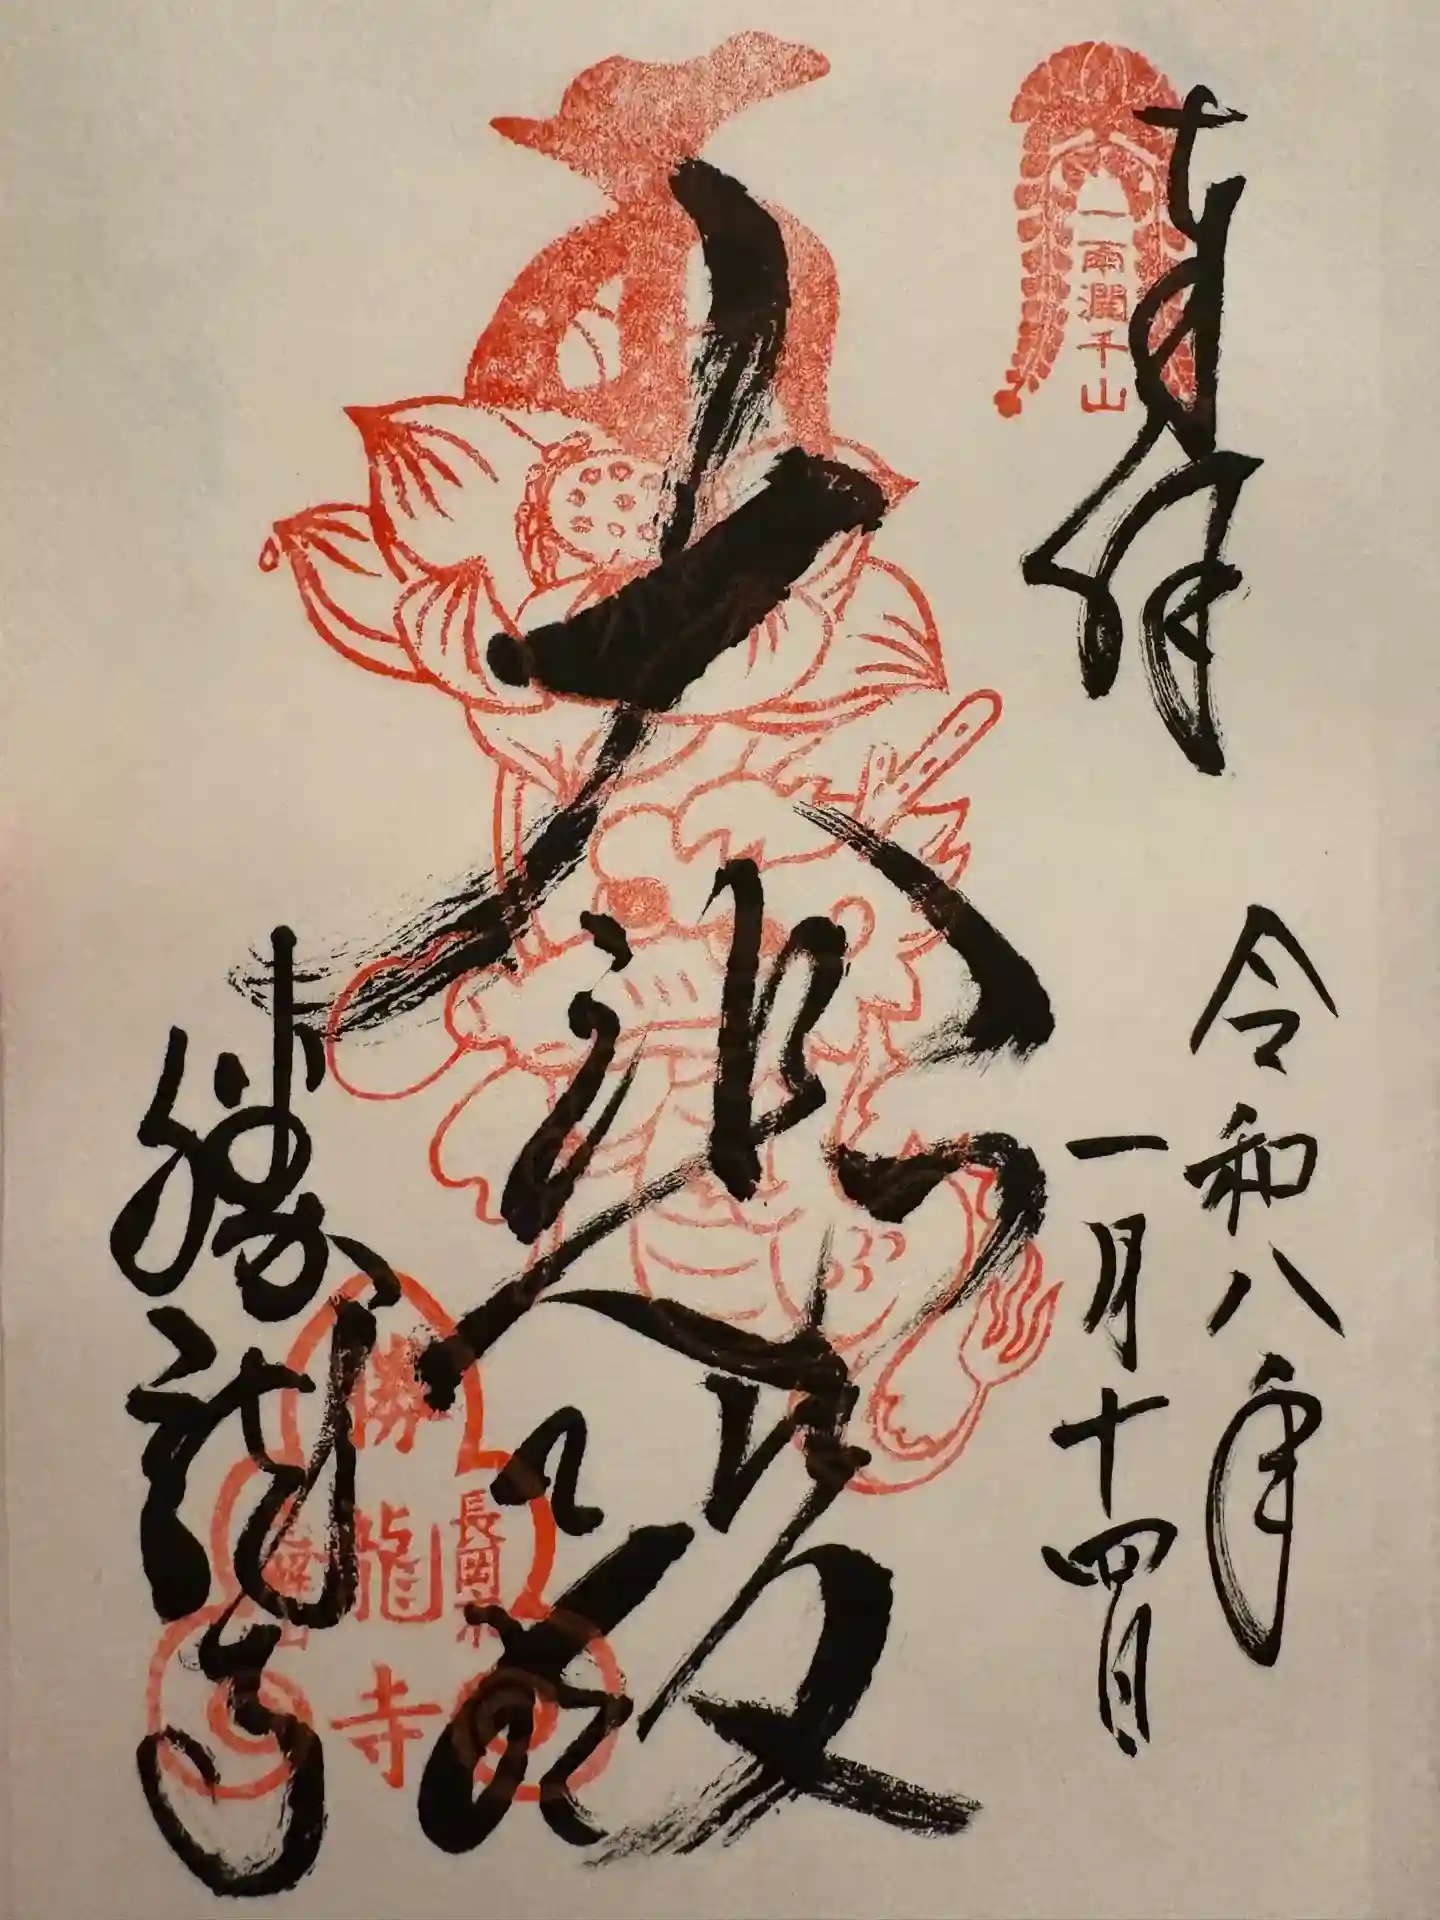 奉拝
一雨潤千山
令和八年
一月十四日
大悲殿
勝龍寺
長岡京
勝龍寺